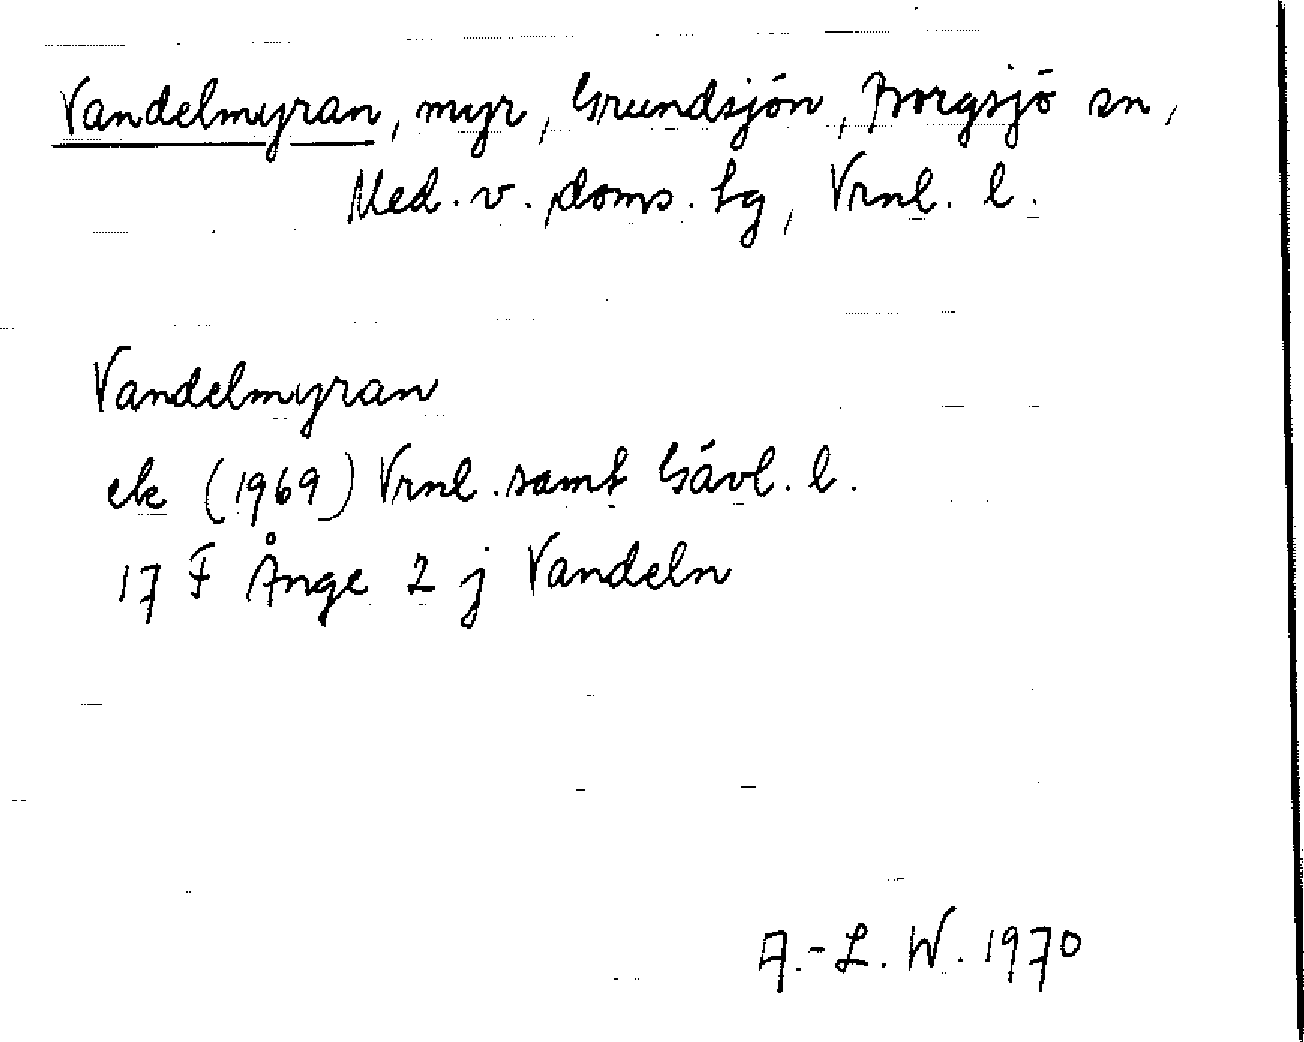 Vandelmyran, myr, Grundsjön, Borgsjö sn,
Med. v. doms. tg, Vrnl. l.
Vandelmyran
ek (1969) Vrnl. samt Gävl. l.
17 F Ånge 2 j Vandeln
A.-L. W. 1970